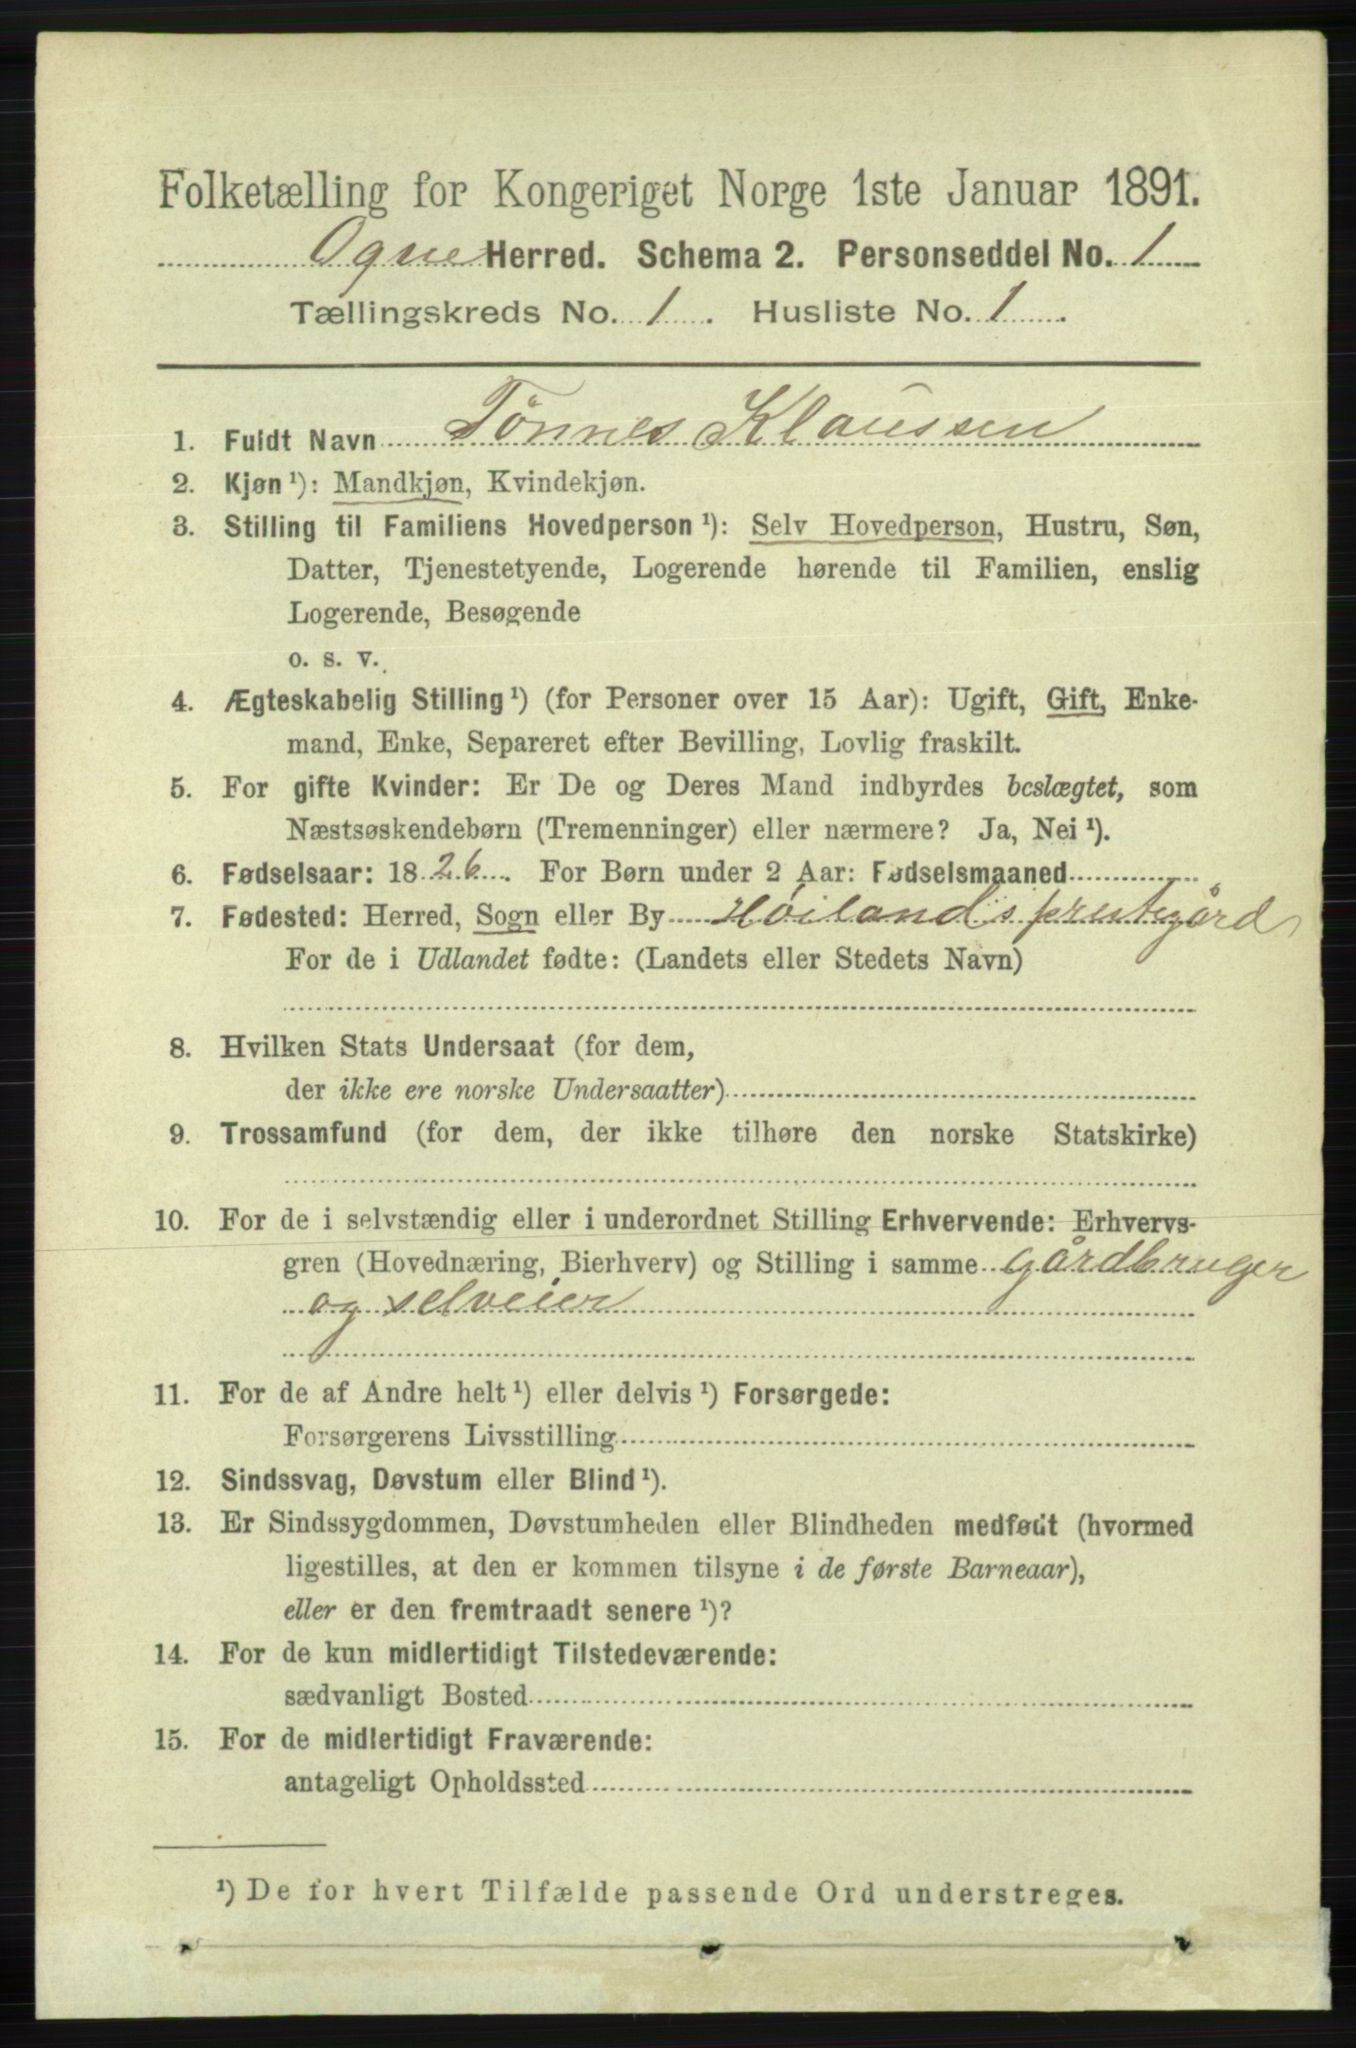 Folketælling for Kongeriget Norge 1ste Januar 1891.
Ogne Herred. Schema 2. Personseddel No. 1
Tællingskreds No. 1. Husliste No. 1.
1. Fuldt Navn Tönnes Klaussen
2. Kjøn ¹): Mandkjøn, Kvindekjøn.
3. Stilling til Familiens Hovedperson ¹): Selv Hovedperson, Hustru, Søn,
Datter, Tjenestetyende, Logerende hørende til Familien, enslig
Logerende, Besøgende
o. s. v.
4. Ægteskabelig Stilling ¹) (for Personer over 15 Aar): Ugift, Gift, Enke-
mand, Enke, Separeret efter Bevilling, Lovlig fraskilt.
5. For gifte Kvinder: Er De og Deres Mand indbyrdes beslægtet, som
Næstsøskendebørn (Tremenninger) eller nærmere? Ja, Nei ¹).
6. Fødselsaar: 1826. For Børn under 2 Aar: Fødselsmaaned
7. Fødested: Herred, Sogn eller By Höilands prestegård
For de i Udlandet fødte: (Landets eller Stedets Navn)
8. Hvilken Stats Undersaat (for dem,
der ikke ere norske Undersaatter)
9. Trossamfund (for dem, der ikke tilhøre den norske Statskirke)
10. For de i selvstændig eller i underordnet Stilling Erhvervende: Erhvervs-
gren (Hovednæring, Bierhverv) og Stilling i samme gårdbruger
og selveier
11. For de af Andre helt ¹) eller delvis ¹) Forsørgede:
Forsørgerens Livsstilling
12. Sindssvag, Døvstum eller Blind ¹).
13. Er Sindssygdommen, Døvstumheden eller Blindheden medfødt (hvormed
ligestilles, at den er kommen tilsyne i de første Barneaar),
eller er den fremtraadt senere ¹)?
14. For de kun midlertidigt Tilstedeværende:
sædvanligt Bosted
15. For de midlertidigt Fraværende:
antageligt Opholdssted
¹) De for hvert Tilfælde passende Ord understreges.